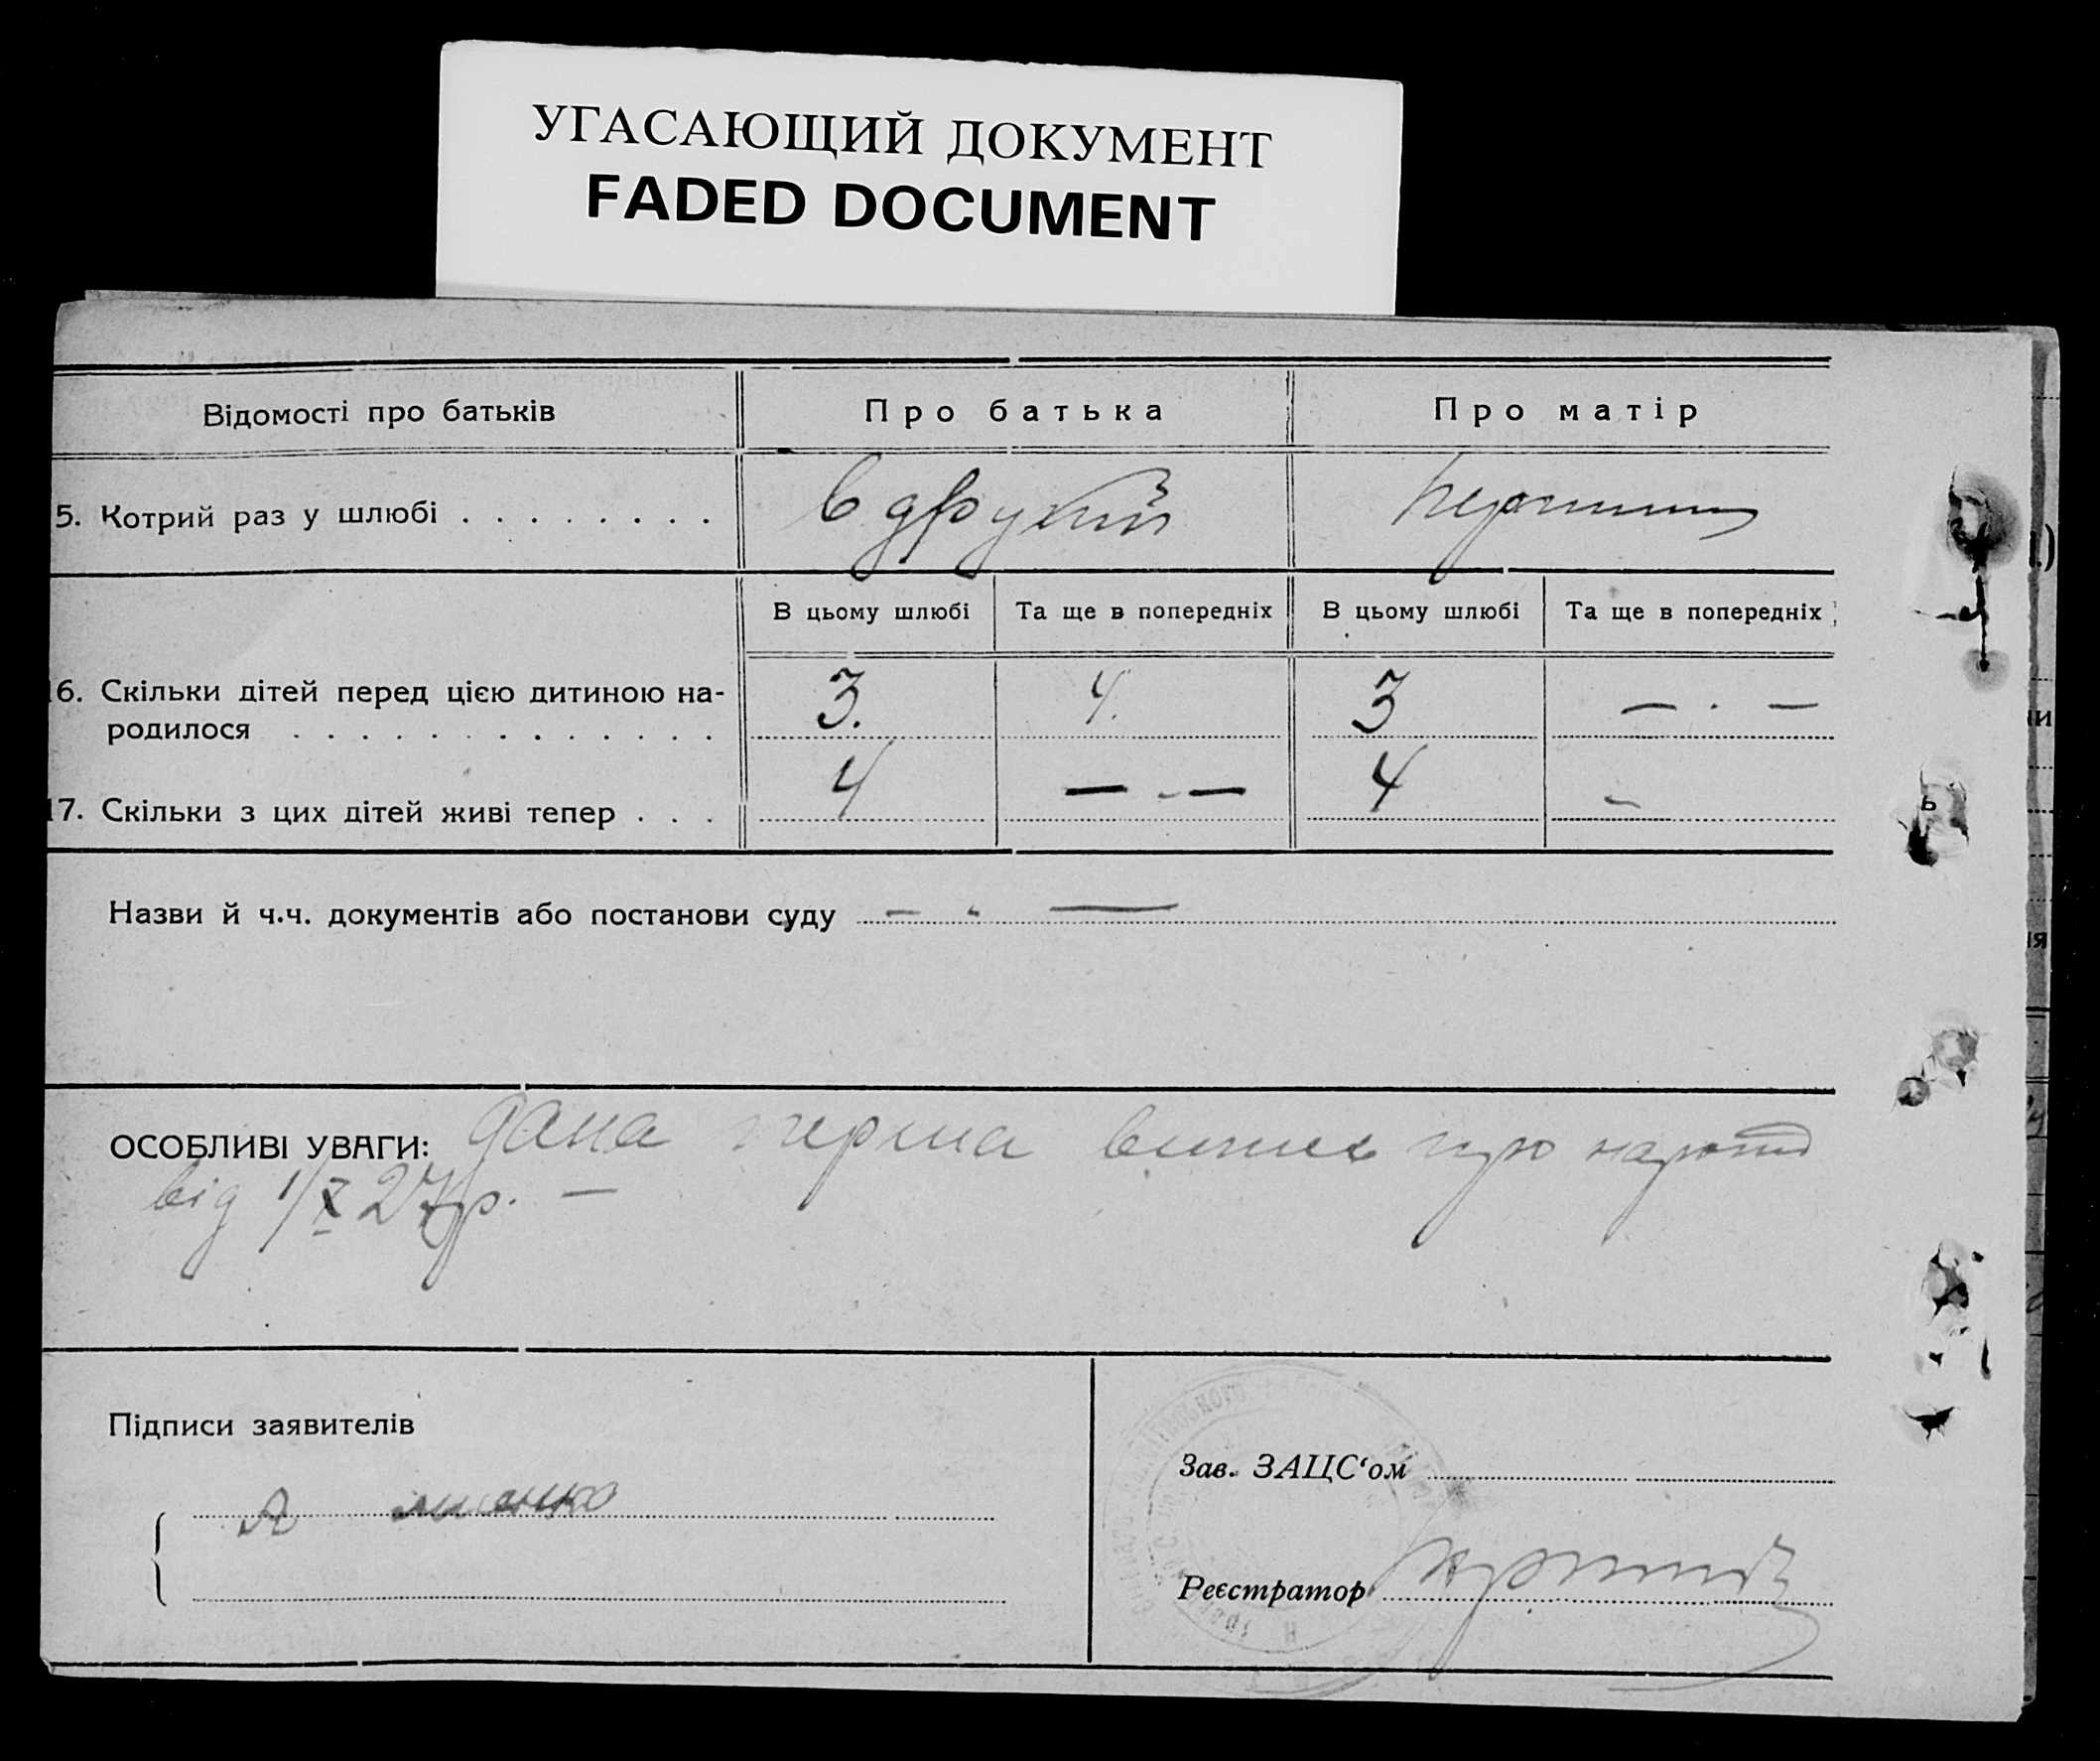 УГАСАЮЩИЙ ДОКУМЕНТ
FADED DOCUMENT
Відомості про батьків
Про батька
Про матір
5. Котрий раз у шлюбі
в другий
перший
В цьому шлюбі
Та ще в попередніх
В цьому шлюбі
Та ще в попередніх
6. Скільки дітей перед цією дитиною на-
родилося
3.
4.
3
— . —
7. Скільки з цих дітей живі тепер
4
— - —
4
-
Назви й ч.ч. документів або постанови суду - - —
ОСОБЛИВІ УВАГИ: дана перша випись про народ
від 1/X 27р. —
Підписи заявителів
Зав. ЗАЦС‘ом
Реєстратор